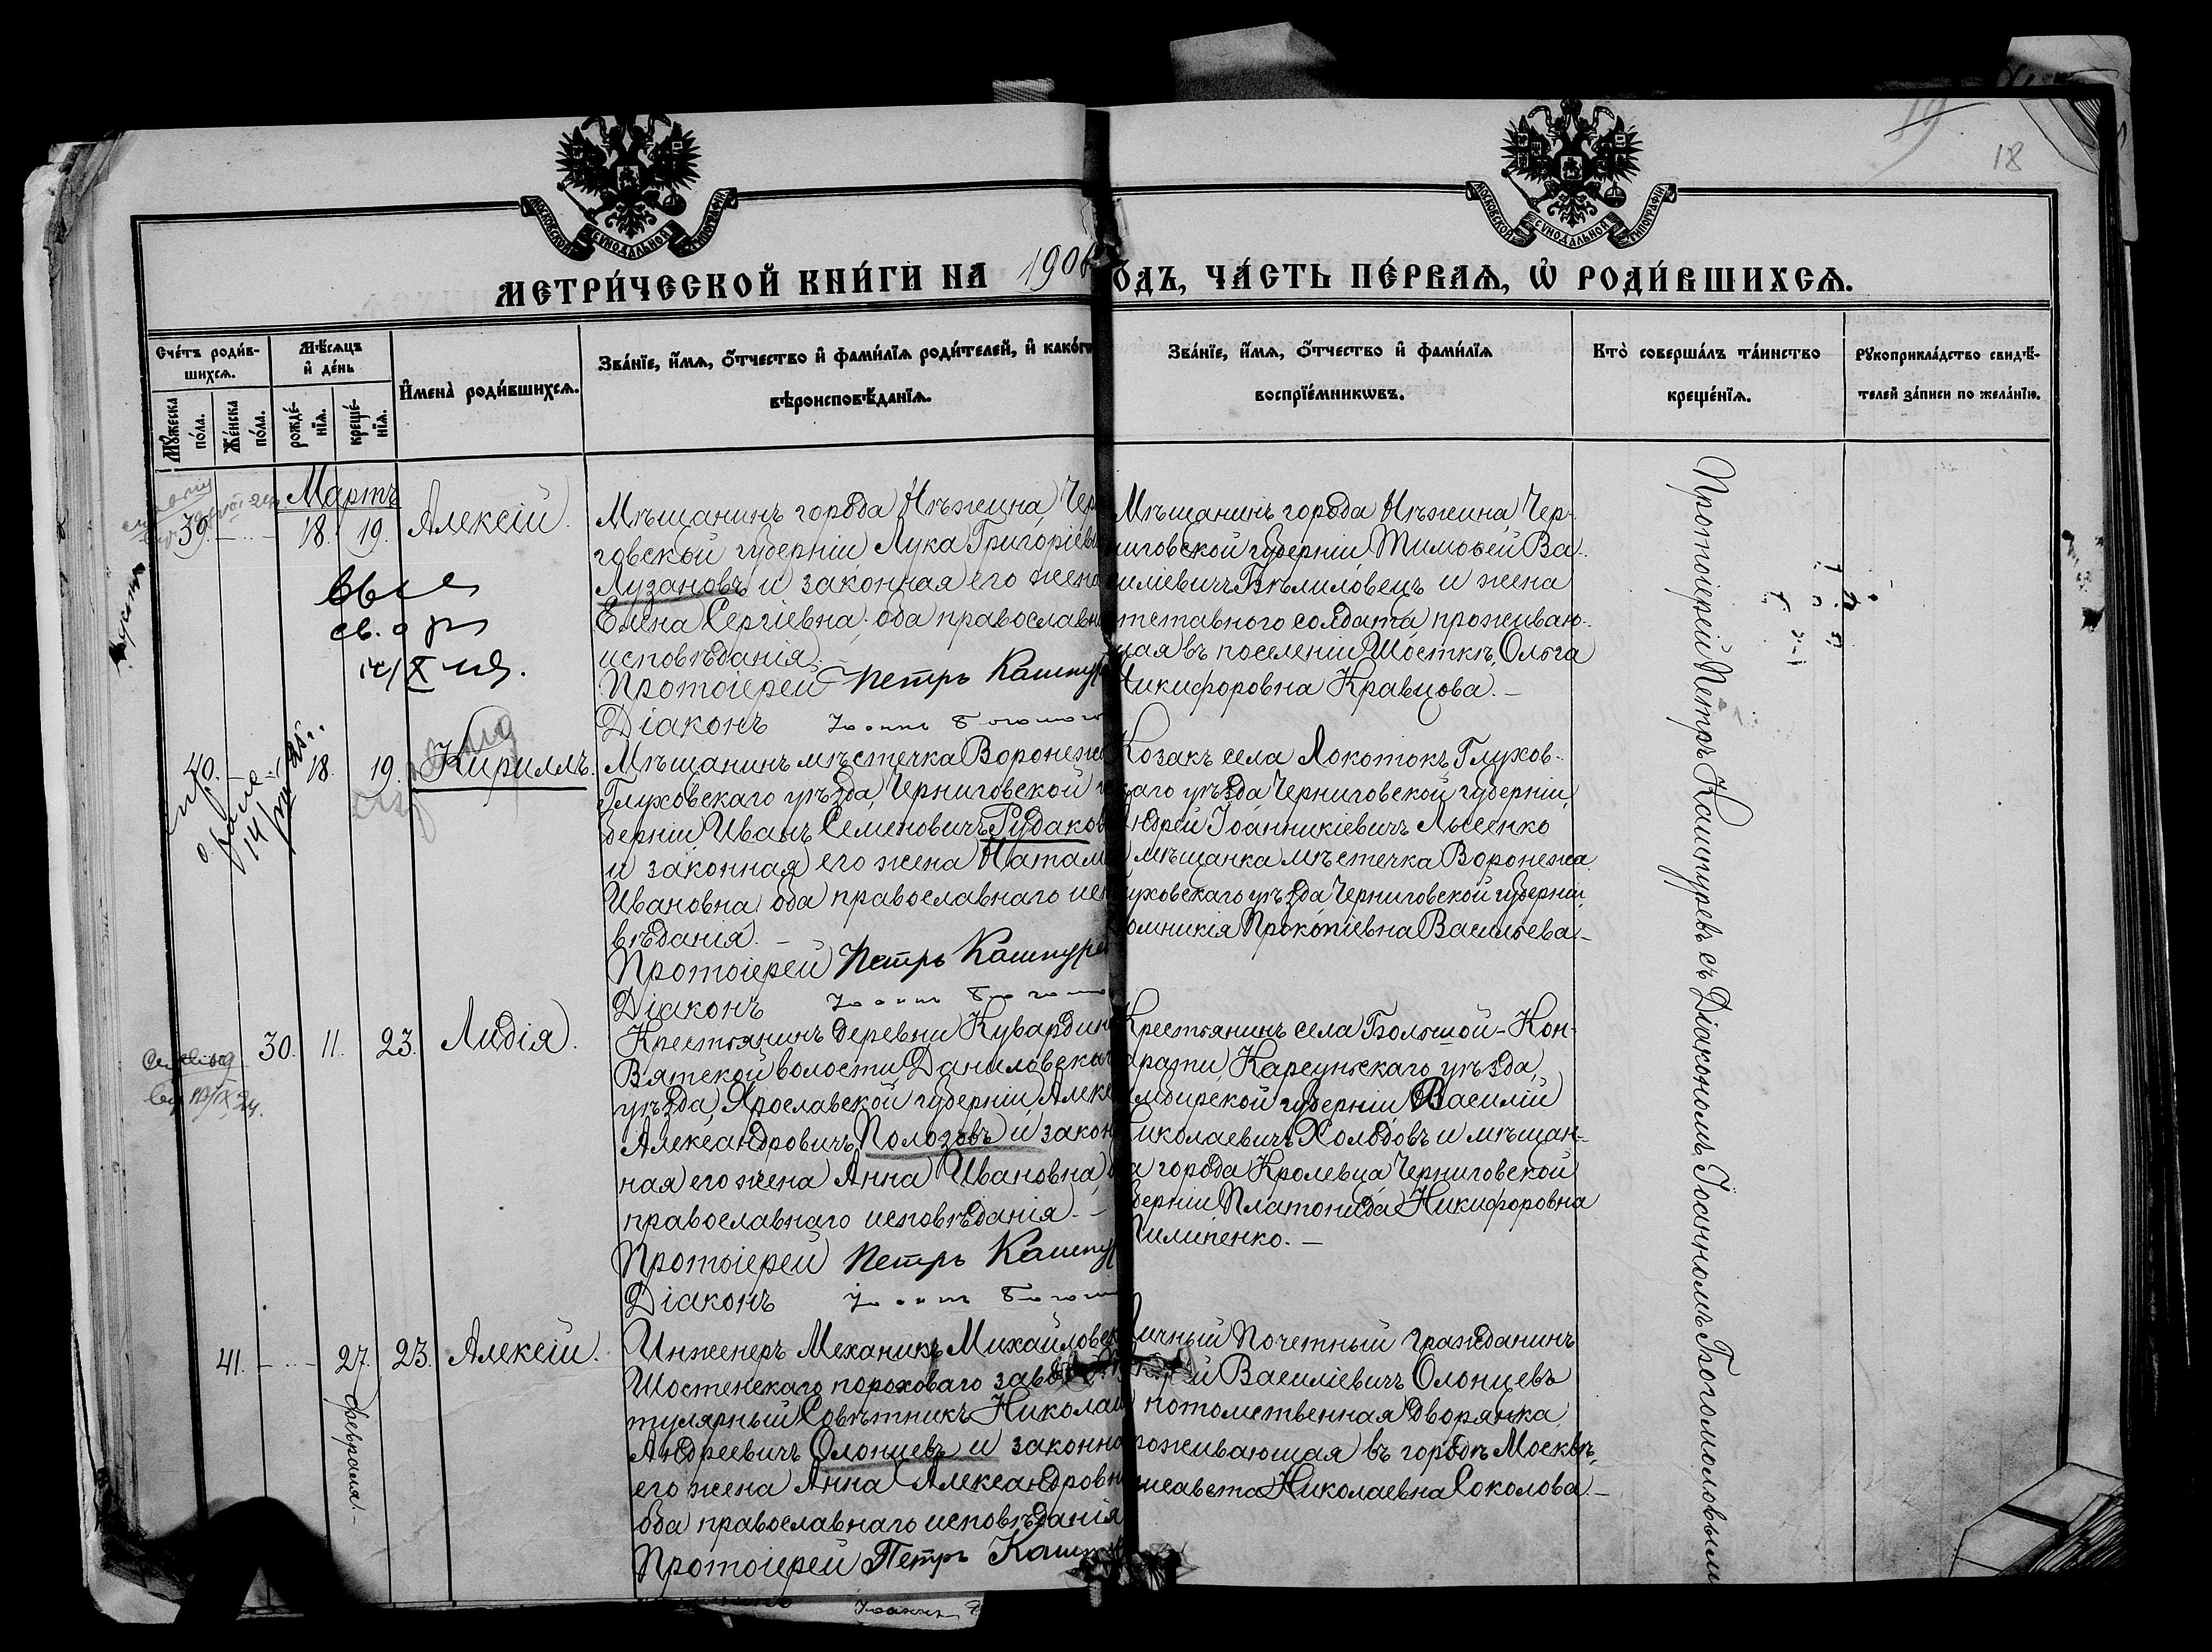 19
18
МОСКОВСКОЙ СѴНОДАЛЬНОЙ ТИПОГРАФІИ
МОСКОВСКОЙ СѴНОДАЛЬНОЙ ТИПОГРАФІИ
МЕТРИ́ЧЕСКОЙ КНИ́ГИ НА 1906
ОДЪ, ЧА́СТЬ ПЕ́РВАѦ, Ѡ҆ РОДИ́ВШИХСѦ.
Сче́тъ роди́в-
шихсѧ.
Мꙋ́жеска по́ла.
Же́нска по́ла.
Мѣ́сѧцъ и҆ де́нь
рожде́-нїѧ.
креще́-нїѧ.
И҆мена̀ роди́вшихсѧ.
Зва́нїе, и҆́мѧ, о҆́тчество и҆ фами́лїѧ роди́телей, и҆ како́гѡ
вѣроисповѣ́данїѧ.
Зва́нїе, и҆́мѧ, о҆́тчество и҆ фами́лїѧ
воспрїе́мникѡвъ.
Кто̀ соверша́лъ та́инство
креще́нїѧ.
Рꙋкоприкла́дство свидѣ́-
телей за́писи по жела́нїю.
Мартъ
39. 18. 19. Алексій.
Мѣщанинъ города Нѣжина, Чер
говской губерніи, Лука Григоріеви
Лузановъ и законная его жена
Елена Сергіевна оба православн
исповѣданія.
Протоіерей Петръ Кашпур
Діаконъ
Мѣщанинъ города Нѣжина, Чер-
ниговской губерніи, Тимофей Ва-
силіевичъ Бѣлиловецъ и жена
отставного солдата, проживаю-
щая въ поселеніи Шосткѣ, Ольга
Никифоровна Кравцова. –
40. 18. 19. Кириллъ.
Мѣщанинъ мѣстечка Воронежа
Глуховскаго уѣзда, Черниговской г
берніи, Иванъ Семеновичъ Рудаков
и законная его жена Натал
Ивановна, оба православнаго исп
вѣданія. –
Протоіерей Петръ Кашпурев
Діаконъ
Козакъ села Локотокъ, Глухов-
скаго уѣзда, Черниговской губерніи,
Андрей Іоанникіевичъ Лысенко
и мѣщанка мѣстечка Воронежа
Глуховскаго уѣзда Черниговской губерніи,
Домникія Прокопіевна Васильева –
30. 11. 23. Лидія.
Крестьянинъ деревни Кувардин
Вятской волости, Даниловскаг
уѣзда, Ярославской губерніи, Алекс
Александровичъ Полозовъ и закон
ная его жена Анна Ивановна, о
православнаго исповѣданія. –
Протоіерей Петръ Кашпур
Діаконъ
Крестьянинъ села Большой-Кон-
драти, Карсунскаго уѣзда,
Симбирской губерніи, Василій
Николаевичъ Холодовъ и мѣщан-
ка города Кролевца, Черниговской
губерніи Платонида Никифоровна
Пилипенко. –
41. 27. февраля. – 23. Алексій.
Инженеръ Механикъ Михайловск
Шостенскаго пороховаго заво
тулярный Совѣтникъ Николай
Андреевичъ Олонцевъ и законна
его жена Анна Александровн
оба православнаго исповѣданія
Протоіерей Петръ Кашп
Личный Почетный гражданинъ
й Василіевичъ Олонцевъ
и потомственная дворянка,
проживающая въ городѣ Москвѣ,
Елисавета Николаевна Соколова. –
Протоіерей Петръ Кашпуревъ съ Діакономъ Іоанномъ Богомоловымъ